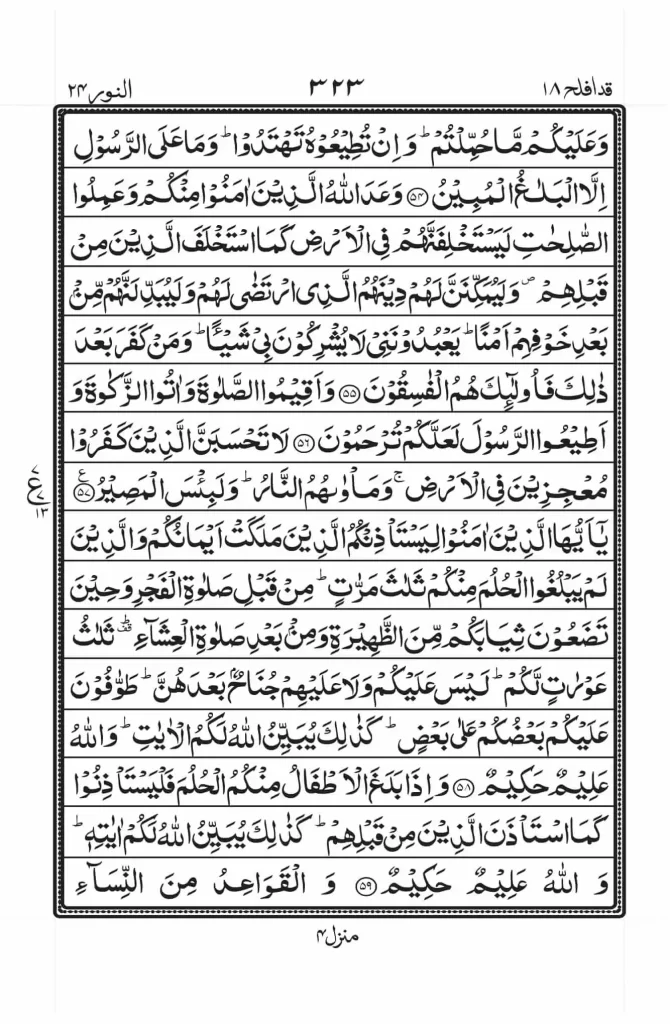 قد افلح ۱۸ ۳۲۳ النور ۲۴
وَعَلَيۡكُمۡ مَّا حُمِّلۡتُمۡ‌ؕ وَاِنۡ تُطِيۡعُوۡهُ تَهۡتَدُوۡا‌ؕ وَمَا عَلَى الرَّسُوۡلِ
اِلَّا الۡبَلٰغُ الۡمُبِيۡنُ ﴿۵۴﴾ وَعَدَ اللّٰهُ الَّذِيۡنَ اٰمَنُوۡا مِنۡكُمۡ وَعَمِلُوا
الصّٰلِحٰتِ لَيَسۡتَخۡلِفَنَّهُمۡ فِى الۡاَرۡضِ كَمَا اسۡتَخۡلَفَ الَّذِيۡنَ مِنۡ
قَبۡلِهِمۡ ۖ وَلَيُمَكِّنَنَّ لَهُمۡ دِيۡنَهُمُ الَّذِى ارۡتَضٰى لَهُمۡ وَلَيُبَدِّلَنَّهُمۡ مِّنۡۢ
بَعۡدِ خَوۡفِهِمۡ اَمۡنًا‌ؕ يَعۡبُدُوۡنَنِىۡ لَا يُشۡرِكُوۡنَ بِىۡ شَيۡـًٔــا‌ؕ وَمَنۡ كَفَرَ بَعۡدَ
ذٰ لِكَ فَاُولٰٓٮِٕكَ هُمُ الۡفٰسِقُوۡنَ ﴿۵۵﴾ وَاَقِيۡمُوا الصَّلٰوةَ وَاٰتُوا الزَّكٰوةَ وَ
اَطِيۡـعُوا الرَّسُوۡلَ لَعَلَّكُمۡ تُرۡحَمُوۡنَ ﴿۵۶﴾ لَا تَحۡسَبَنَّ الَّذِيۡنَ كَفَرُوۡا
مُعۡجِزِيۡنَ فِى الۡاَرۡضِ‌ۚ وَمَاۡوٰٮهُمُ النَّارُ‌ؕ وَلَبِئۡسَ الۡمَصِيۡرُ ﴿۵۷﴾ ع
ع ۷ ۱۳
يٰۤـاَيُّهَا الَّذِيۡنَ اٰمَنُوۡا لِيَسۡتَاۡذِنۡكُمُ الَّذِيۡنَ مَلَكَتۡ اَيۡمَانُكُمۡ وَالَّذِيۡنَ
لَمۡ يَـبۡلُغُوا الۡحُـلُمَ مِنۡكُمۡ ثَلٰثَ مَرّٰتٍ‌ؕ مِنۡ قَبۡلِ صَلٰوةِ الۡفَجۡرِ وَحِيۡنَ
تَضَعُوۡنَ ثِيَابَكُمۡ مِّنَ الظَّهِيۡرَةِ وَمِنۡۢ بَعۡدِ صَلٰوةِ الۡعِشَآءِ‌ ؕ ثَلٰثُ
عَوۡرٰتٍ لَّـكُمۡ‌ؕ لَـيۡسَ عَلَيۡكُمۡ وَلَا عَلَيۡهِمۡ جُنَاحٌۢ بَعۡدَهُنَّ‌ؕ طَوّٰفُوۡنَ
عَلَيۡكُمۡ بَعۡضُكُمۡ عَلٰى بَعۡضٍ‌ؕ كَذٰلِكَ يُبَيِّنُ اللّٰهُ لَـكُمُ الۡاٰيٰتِ‌ؕ وَاللّٰهُ
عَلِيۡمٌ حَكِيۡمٌ ﴿۵۸﴾ وَاِذَا بَلَغَ الۡاَطۡفَالُ مِنۡكُمُ الۡحُـلُمَ فَلۡيَسۡتَاۡذِنُوۡا
كَمَا اسۡتَـاۡذَنَ الَّذِيۡنَ مِنۡ قَبۡلِهِمۡ‌ؕ كَذٰلِكَ يُبَيِّنُ اللّٰهُ لَـكُمۡ اٰيٰتِهٖ‌ؕ
وَ اللّٰهُ عَلِيۡمٌ حَكِيۡمٌ ﴿۵۹﴾ وَ الۡقَوَاعِدُ مِنَ النِّسَآءِ
منزل ۴